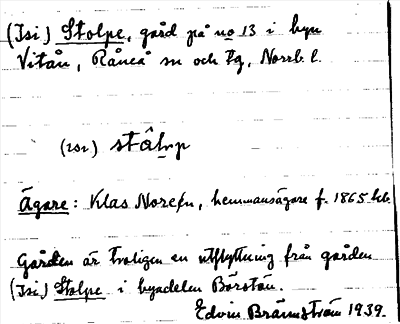 (Isi) Stolpe, gård på no 13 i byn
Vitån, Råneå sn och tg, Norrb. l.
stâlp
Ägare: Klas Norén, hemmansägare f. 1865 hb.
Gården är troligen en utflyttning från gården
(Isi) Stolpe i byadelen Börstan.
Edvin Brännström 1939.